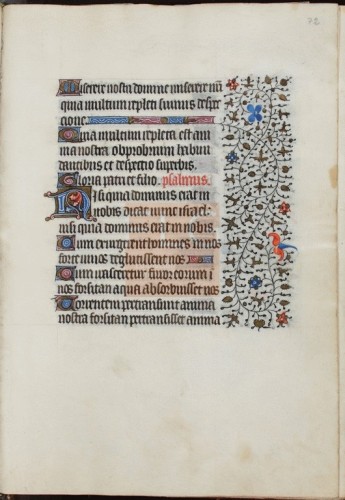 72
Miserere nostri domine miserere nrī
quia multum repleti sumus despec
tione
Quia multum repleta est ani
ma nostra obprobrium habun
dantibus et despectio superbis.
Gloria patri et filio. psalmus.
Nisi quia dominus erat in
nobis dicat nunc israel:
nisi quia dominus erat in nobis.
Cum exurgerent homines in nos
forte vivos deglutissent nos
Cum irasceretur furor eorum i
nos forsitan aqua absorbuisset nos
Torrentem pertransivit anima
nostra forsitan pertransisset anima